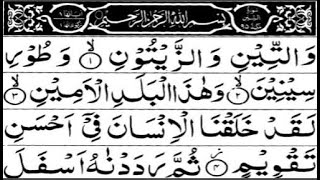 بِسْمِ اللهِ الرَّحْمٰنِ الرَّحِيْمِ
وَالتِّيْنِ وَالزَّيْتُوْنِ ۙ۱ وَ طُوْرِ
سِيْنِيْنَ ۙ۲ وَهٰذَا الْبَلَدِ الْاَمِيْنِ ۙ۳
لَقَدْ خَلَقْنَا الْاِنْسَانَ فِيْۤ اَحْسَنِ
تَقْوِيْمٍ ۴ ثُمَّ رَدَدْنٰهُ اَسْفَلَ